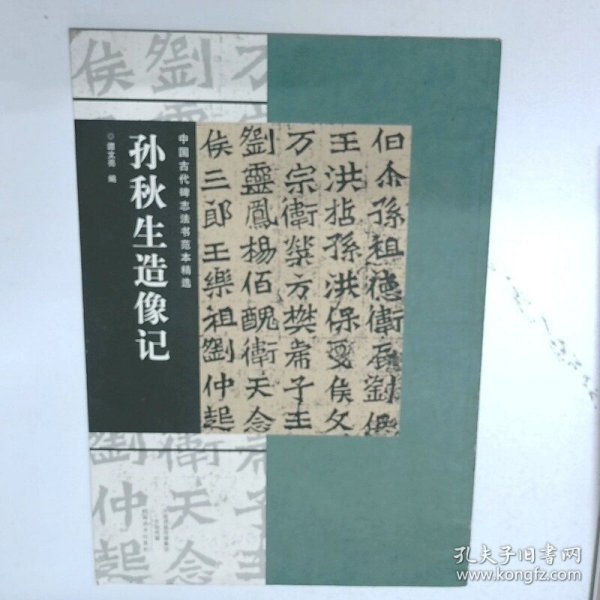 中国古代碑志法书范本精选
孙秋生造像记
◎谭文选 编
伯余孫祖德衛石劉俱
王洪拈孫洪保戛侯文
万宗衛榮方樊常子王
劉靈鳳楊佰醜衛天念
侯三郎王樂祖劉仲起
万
劉
侯
念
衛天
劉仲起
孔夫子旧书网
www.kongfz.com